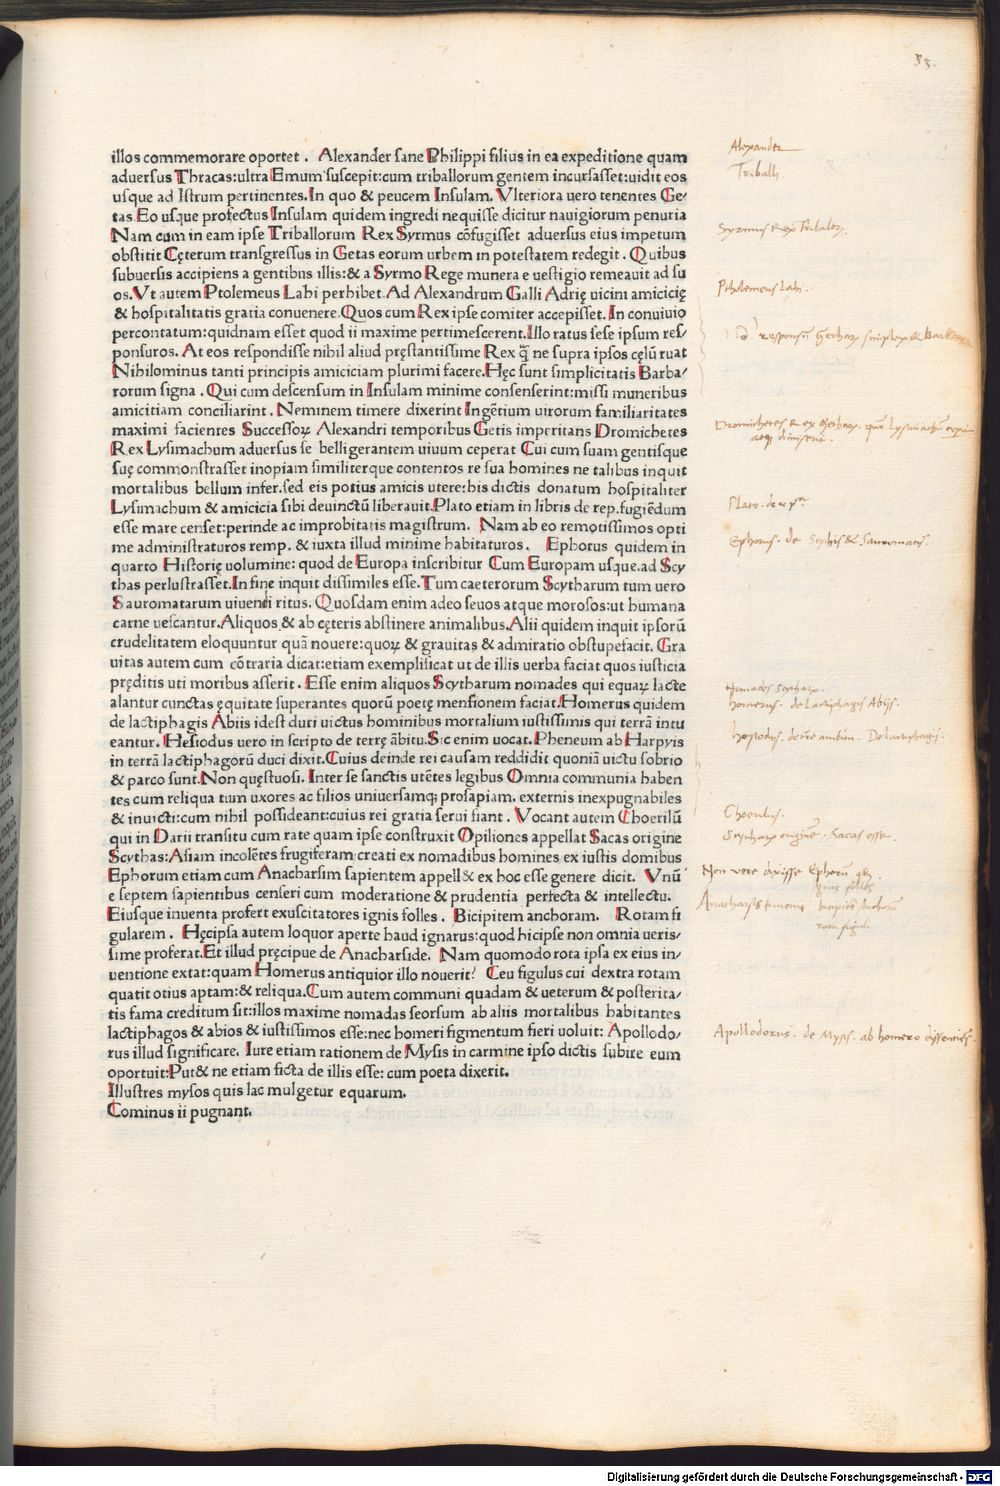 33.
illos commemorare oportet . Alexander sane Philippi filius in ea expeditione quam
aduersus Thracas:ultra Emum suscepit:cum triballorum gentem incursasset:uidit eos
usque ad Istrum pertinentes.In quo & peucem Insulam. Vlteriora uero tenentes Ge/
tas Eo usque profectus Insulam quidem ingredi nequisse dicitur nauigiorum penuria
Nam cum in eam ipse Triballorum Rex Syrmus cōfugisset aduersus eius impetum
obstitit Cęterum transgressus in Getas eorum urbem in potestatem redegit . Quibus
subuersis accipiens a gentibus illis:& a Syrmo Rege munera e uestigio remeauit ad su
os.Vt autem Ptolemeus Labi perhibet.Ad Alexandrum Galli Adrię uicini amicicię
& hospitalitatis gratia conuenere.Quos cum Rex ipse comiter accepisset.In conuiuio
percontatum:quidnam esset quod ii maxime pertimescerent.Illo ratus sese ipsum res/
ponsuros. At eos respondisse nihil aliud pręstantissime Rex q̄ ne supra ipsos cęlū ruat
Nihilominus tanti principis amiciciam plurimi facere.Hęc sunt simplicitatis Barba/
rorum signa . Qui cum descensum in Insulam minime consenserint:missi muneribus
amicitiam conciliarint . Neminem timere dixerint Ingētium uirorum familiaritates
maximi facientes Successoꝝ Alexandri temporibus Getis imperitans Dromichetes
Rex Lysimachum aduersus se belligerantem uiuum ceperat Cui cum suam gentisque
suę commonstrasset inopiam similiterque contentos re sua homines ne talibus inquit
mortalibus bellum infer.sed eis potius amicis utere:his dictis donatum hospitaliter
Lysimachum & amicicia sibi deuinctū liberauit.Plato etiam in libris de rep.fugiēdum
esse mare censet:perinde ac improbitatis magistrum. Nam ab eo remotissimos opti
me administraturos remp. & iuxta illud minime habitaturos . Ephorus quidem in
quarto Historię uolumine: quod de Europa inscribitur Cum Europam usque.ad Scy
thas perlustrasset.In fine inquit dissimiles esse.Tum caeterorum Scytharum tum uero
Sauromatarum uiuendi ritus. Quosdam enim adeo seuos atque morosos:ut humana
carne uescantur.Aliquos & ab cęteris abstinere animalibus.Alii quidem inquit ipsorū
crudelitatem eloquuntur quā nouere:quoꝝ & grauitas & admiratio obstupefacit. Gra
uitas autem cum cōtraria dicat:etiam exemplificat ut de illis uerba faciat quos iusticia
pręditis uti moribus asserit . Esse enim aliquos Scytharum nomades qui equaꝝ lacte
alantur cunctas ęquitate superantes quorū poetę mensionem faciat.Homerus quidem
de lactiphagis Abiis idest duri uictus hominibus mortalium iustissimis qui terrā intu
eantur. Hesiodus uero in scripto de terrę ābitu.Sic enim uocat.Pheneum ab Harpyis
in terrā lactiphagorū duci dixit.Cuius deinde rei causam reddidit quoniā uictu sobrio
& parco sunt.Non quęstuosi. Inter se sanctis utētes legibus Omnia communia haben
tes cum reliqua tum uxores ac filios uniuersamqȝ prosapiam. externis inexpugnabiles
& inuicti:cum nihil possideant:cuius rei gratia serui fiant . Vocant autem Choerilū
qui in Darii transitu cum rate quam ipse construxit Opiliones appellat Sacas origine
Scythas:Asiam incolētes frugiferam creati ex nomadibus homines ex iustis domibus
Ephorum etiam cum Anacharsim sapientem appell& ex hoc esse genere dicit. Vnū
e septem sapientibus censeri cum moderatione & prudentia perfecta & intellectu.
Eiusque inuenta profert exuscitatores ignis folles . Bicipitem anchoram. Rotam fi
gularem . Hęcipsa autem loquor aperte haud ignarus:quod hicipse non omnia ueris/
sime proferat.Et illud pręcipue de Anacharside. Nam quomodo rota ipsa ex eius in/
uentione extat:quam Homerus antiquior illo nouerit? Ceu figulus cui dextra rotam
quatit otius aptam:& reliqua.Cum autem communi quadam & ueterum & posterita/
tis fama creditum sit:illos maxime nomadas seorsum ab aliis mortalibus habitantes
lactiphagos & abios & iustissimos esse:nec homeri figmentum fieri uoluit: Apollodo/
rus illud significare. Iure etiam rationem de Mysis in carmine ipso dictis subire eum
oportuit:Put& ne etiam ficta de illis esse: cum poeta dixerit.
Illustres mysos quis lac mulgetur equarum.
Cominus ii pugnant.
Alexander
Triballi.
Syrmus Rex Triballoꝝ.
Ptholemeus Labi.
responsū Gethaꝝ simplex &
Dromichetes Rex Gethaꝝ. Lysimachū
Plato. de
Ephorus. de Scythis & Sauromatis.
Nomades Scythaꝝ.
homerus. de Lactiphagis Abijs.
hesiodus. De Lactiphagis.
Choerilus.
Scythaꝝ origine. Sacas esse.
Non vere dixisse Ephorū
Anacharsis
Apollodorus. de Mysis. ab homero
Digitalisierung gefördert durch die Deutsche Forschungsgemeinschaft - DFG